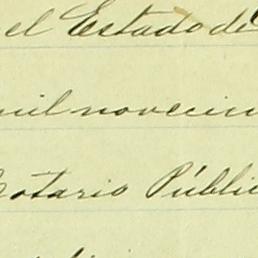 el Estado de
mil novecien
Notario Públic